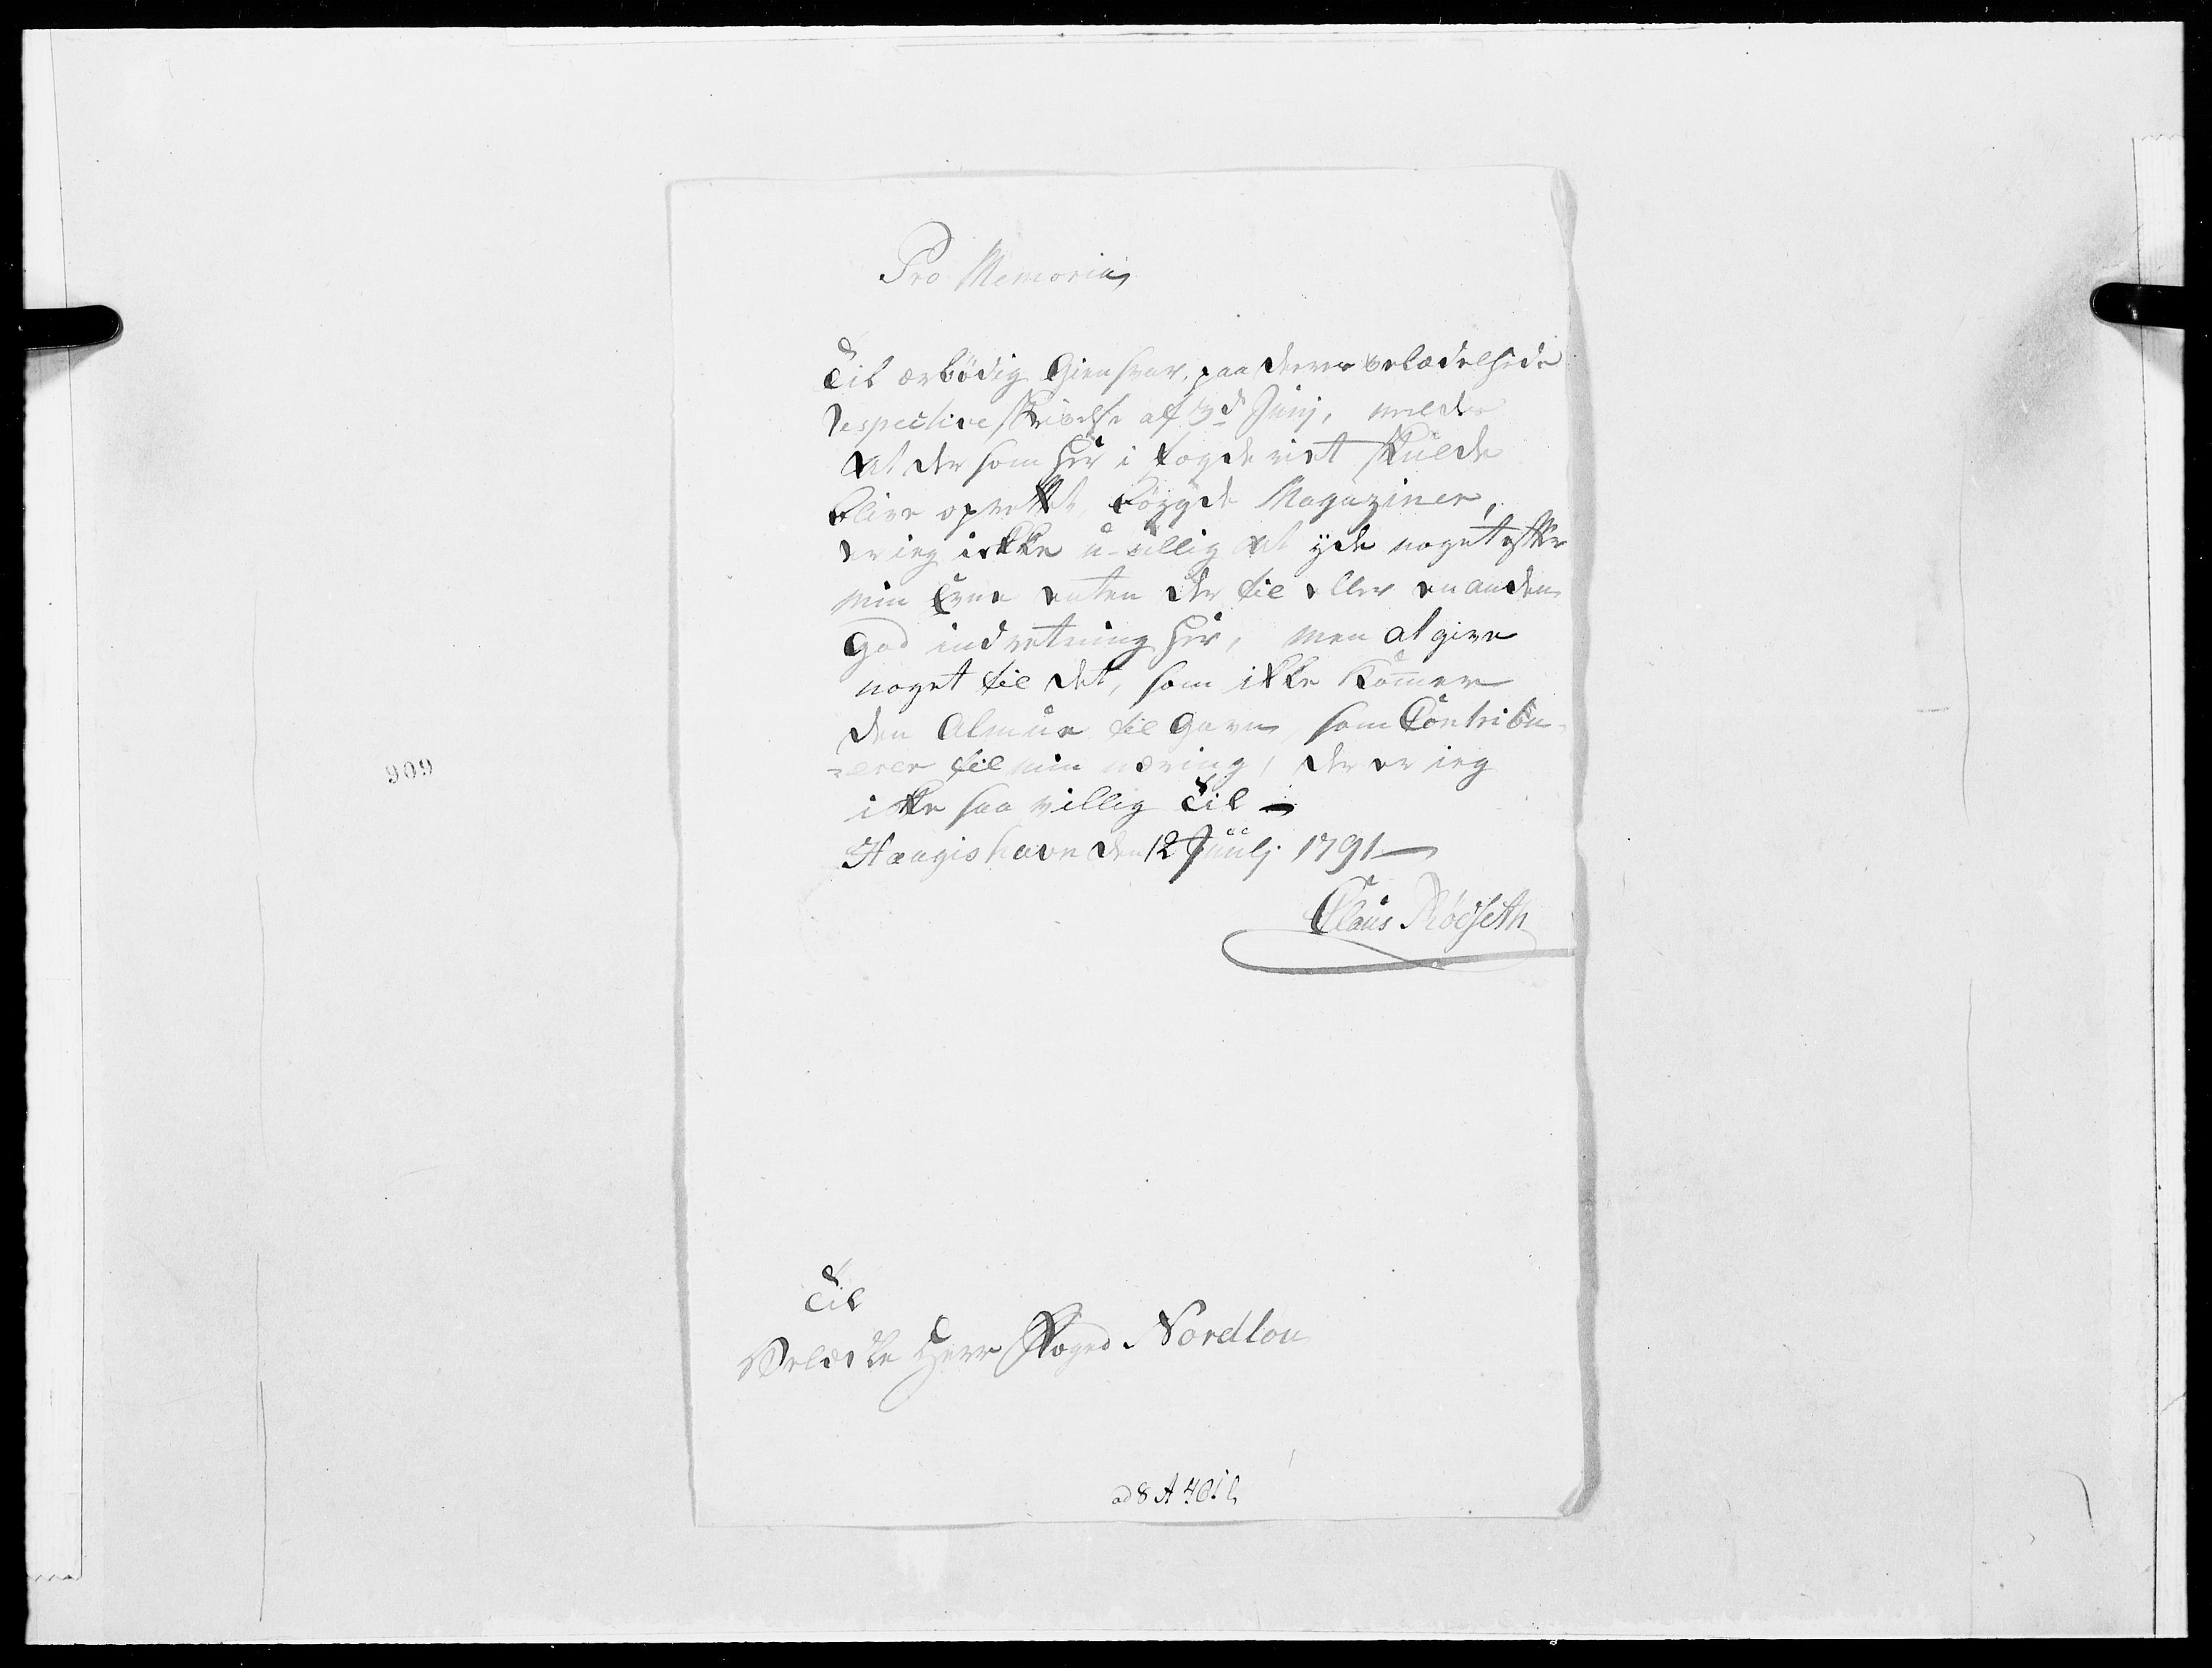 Pro Memoria
Til ærbødig Giensvar, paa deres velædelheds
respective skrivelse af 3d Junj, melder
at der som her i fogderiet skulde
blive oprettet bøygde Magaziner,
er ieg ikke u-villig at yde noget efter
min Evne enten der til eller en anden
god indretning her, men at give
noget til det, som ikke kommer
den Almue til gavn, som Contribu-
-erer til min næring, der er ieg
ikke saa villig Til -
Haugishavn den 12 Juulj 1791 -
Claus Rødseth
Til
Velædle Herr Foged Nordlou
909